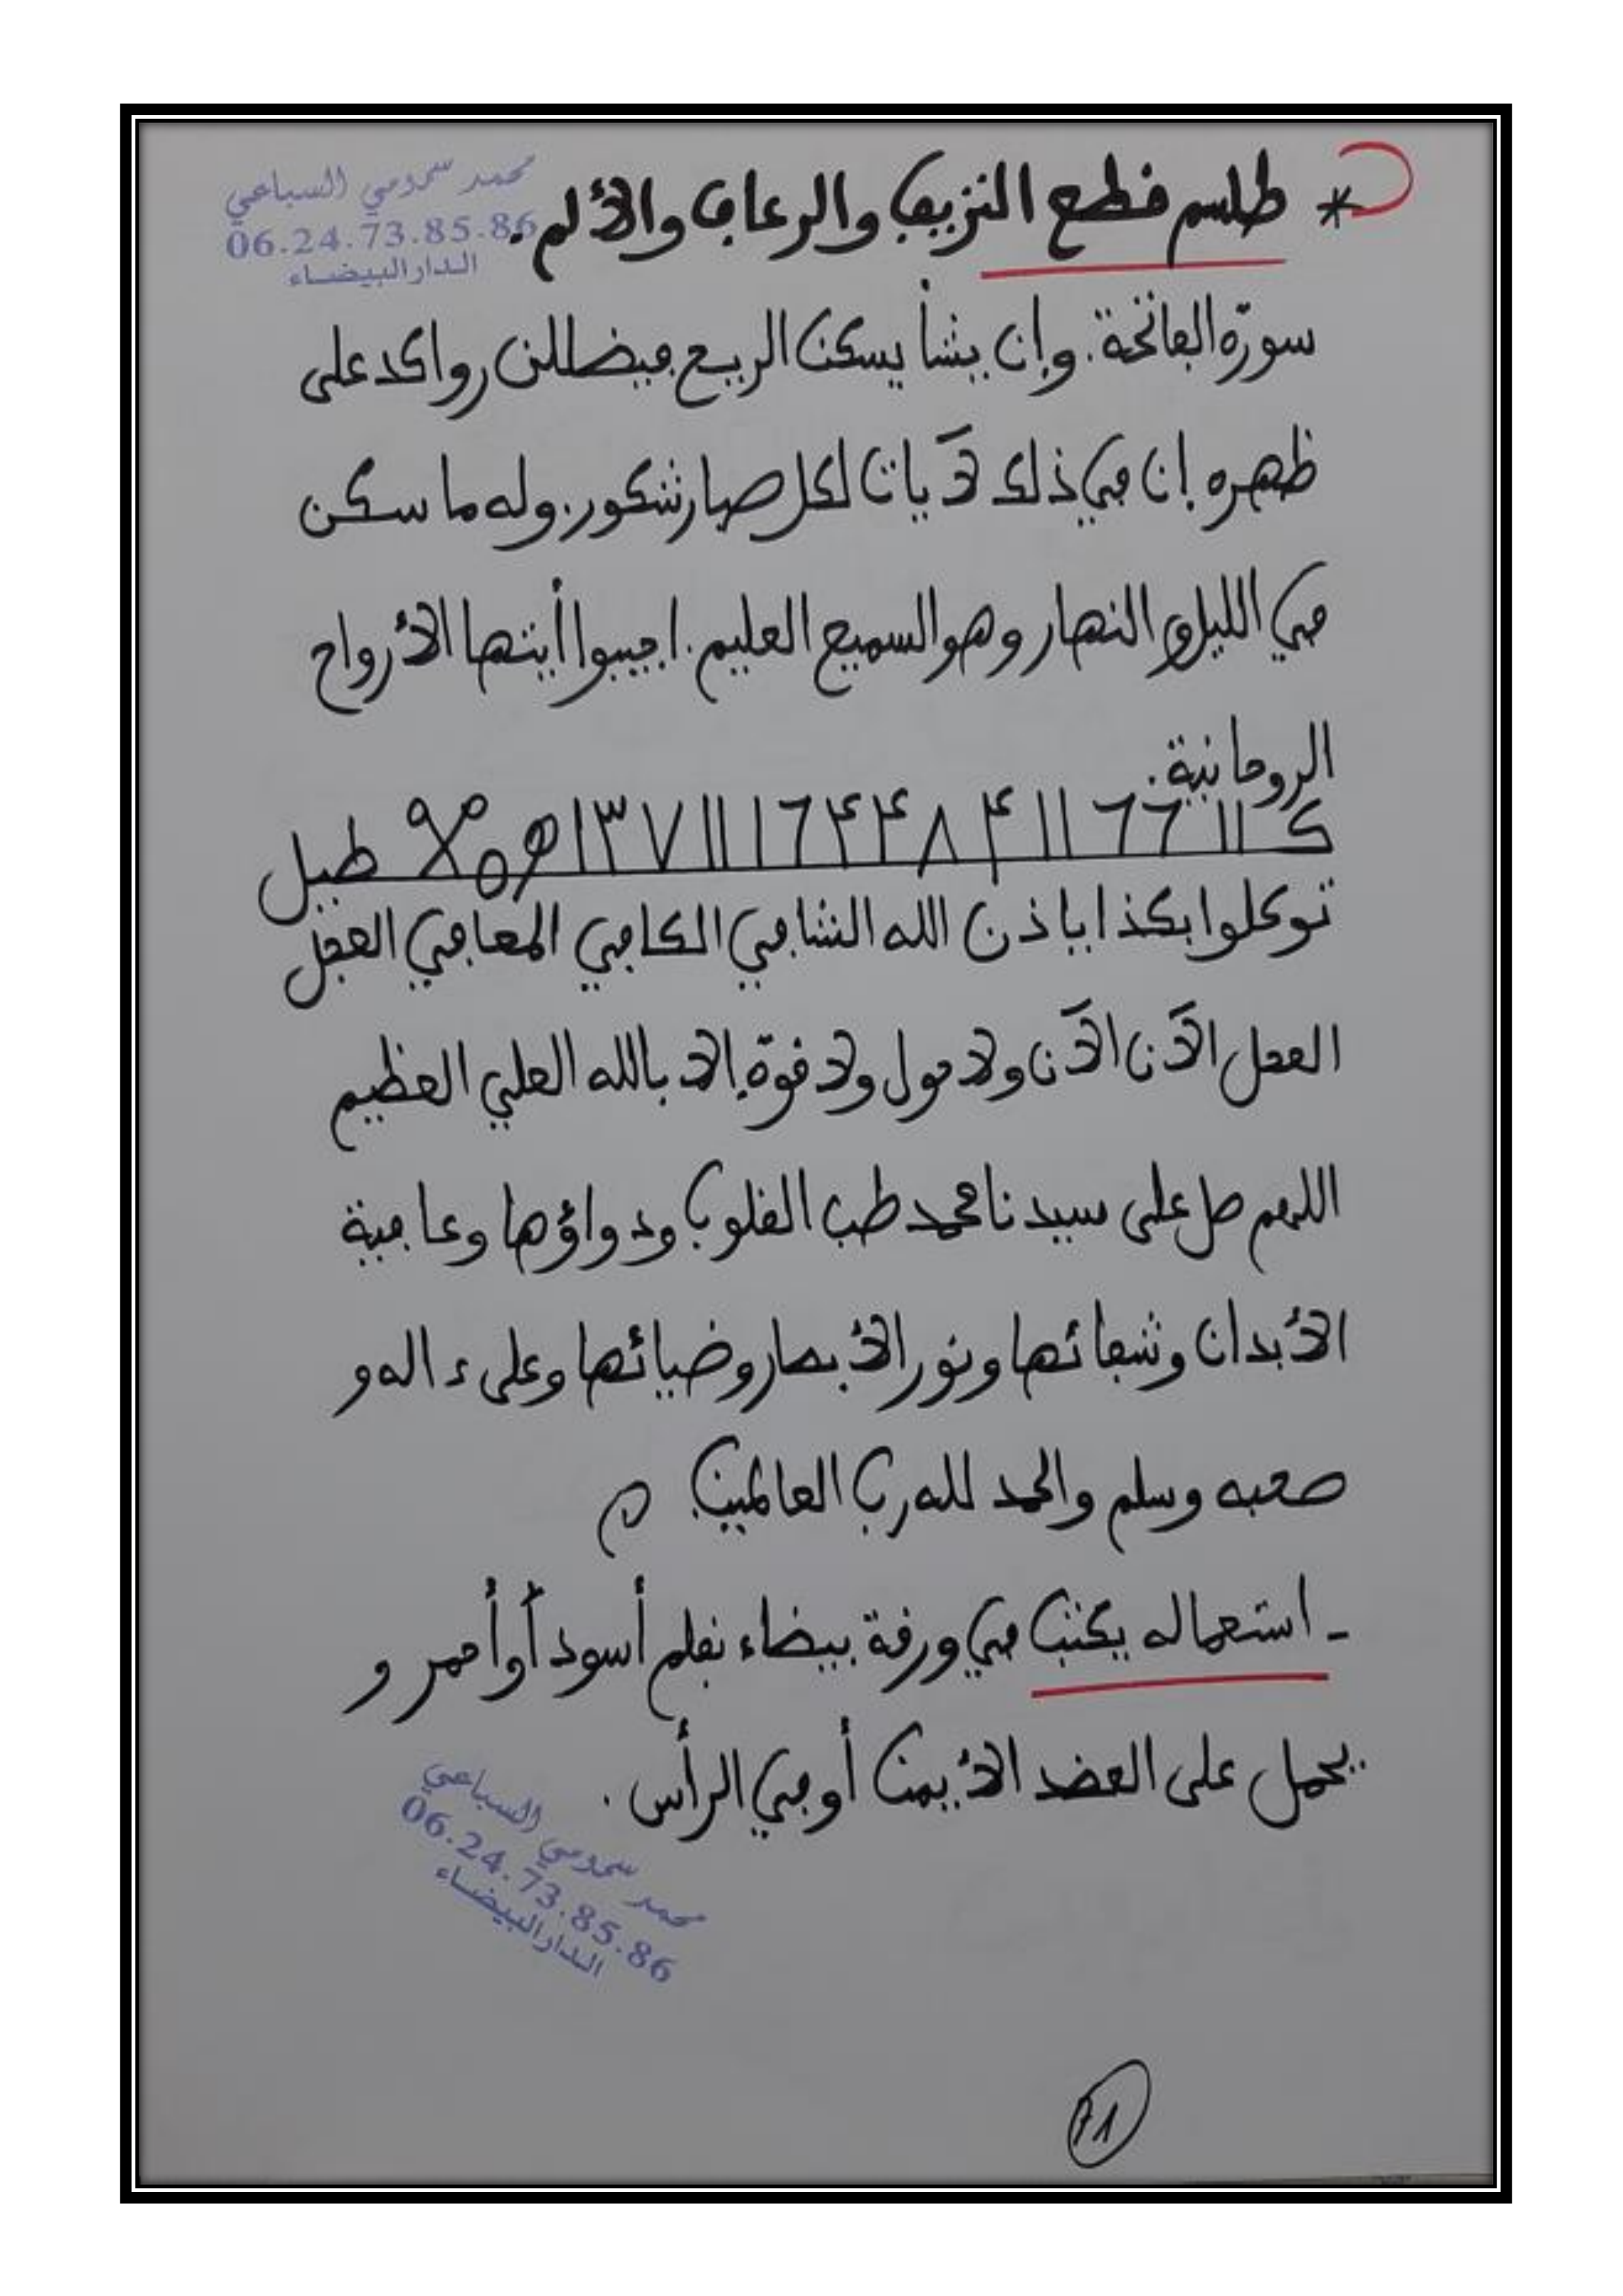 * طلسم قطع النزيف والرعاف والألم.
محمد سحومي السباعي
06.24.73.85.86
الدار البيضاء
سورة الفاتحة. وإن يشأ يسكن الريح فيضللن رواكد على
ظهره إن في ذلك لآيات لكل صبار شكور. وله ما سكن
في الليل والنهار وهو السميع العليم. اجيبوا أيتها الأرواح
الروحانية.
طيل
توكلوا بكذا باذن الله الشافي الكافي المعافي العجل
العجل الآن الآن ولا حول ولا قوة إلا بالله العلي العظيم
اللهم صل على سيدنا محمد طب القلوب ودواؤها وعافية
الأبدان وشفائها ونور الأبصار وضيائها وعلى ءاله و
صحبه وسلم والحمد لله رب العالمين
- استعماله يكتب في ورقة بيضاء بقلم أسود أو أحمر و
يحمل على العضد الأيمن أو في الرأس.
محمد سحومي السباعي
06.24.73.85.86
الدار البيضاء
71